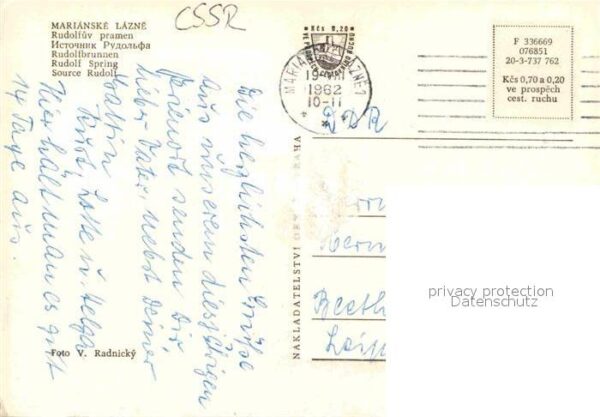 MARIÁNSKÉ LÁZNĚ
Rudolfův pramen
Источник Рудольфа
Rudolfbrunnen
Rudolf Spring
Source Rudolf
ČSSR
Kčs 0,20
MARIÁNSKÉ LÁZNĚ 1
1962
10-11
F 336669
076851
20-3-737 762
Kčs 0,70 a 0,20
ve prospěch
cest. ruchu
DDR
Die herzlichsten Grüße
aus unserem diesjährigen
senden Dir
lieber Vater, nebst Deiner
Gattin
Kurt, Lotte u. Helga
Hier hält man es gut
14 Tage aus.
NAKLADATELSTVÍ
PRAHA
Herrn
Herm
Beeth
Leip
privacy protection
Datenschutz
Foto V. Radnický